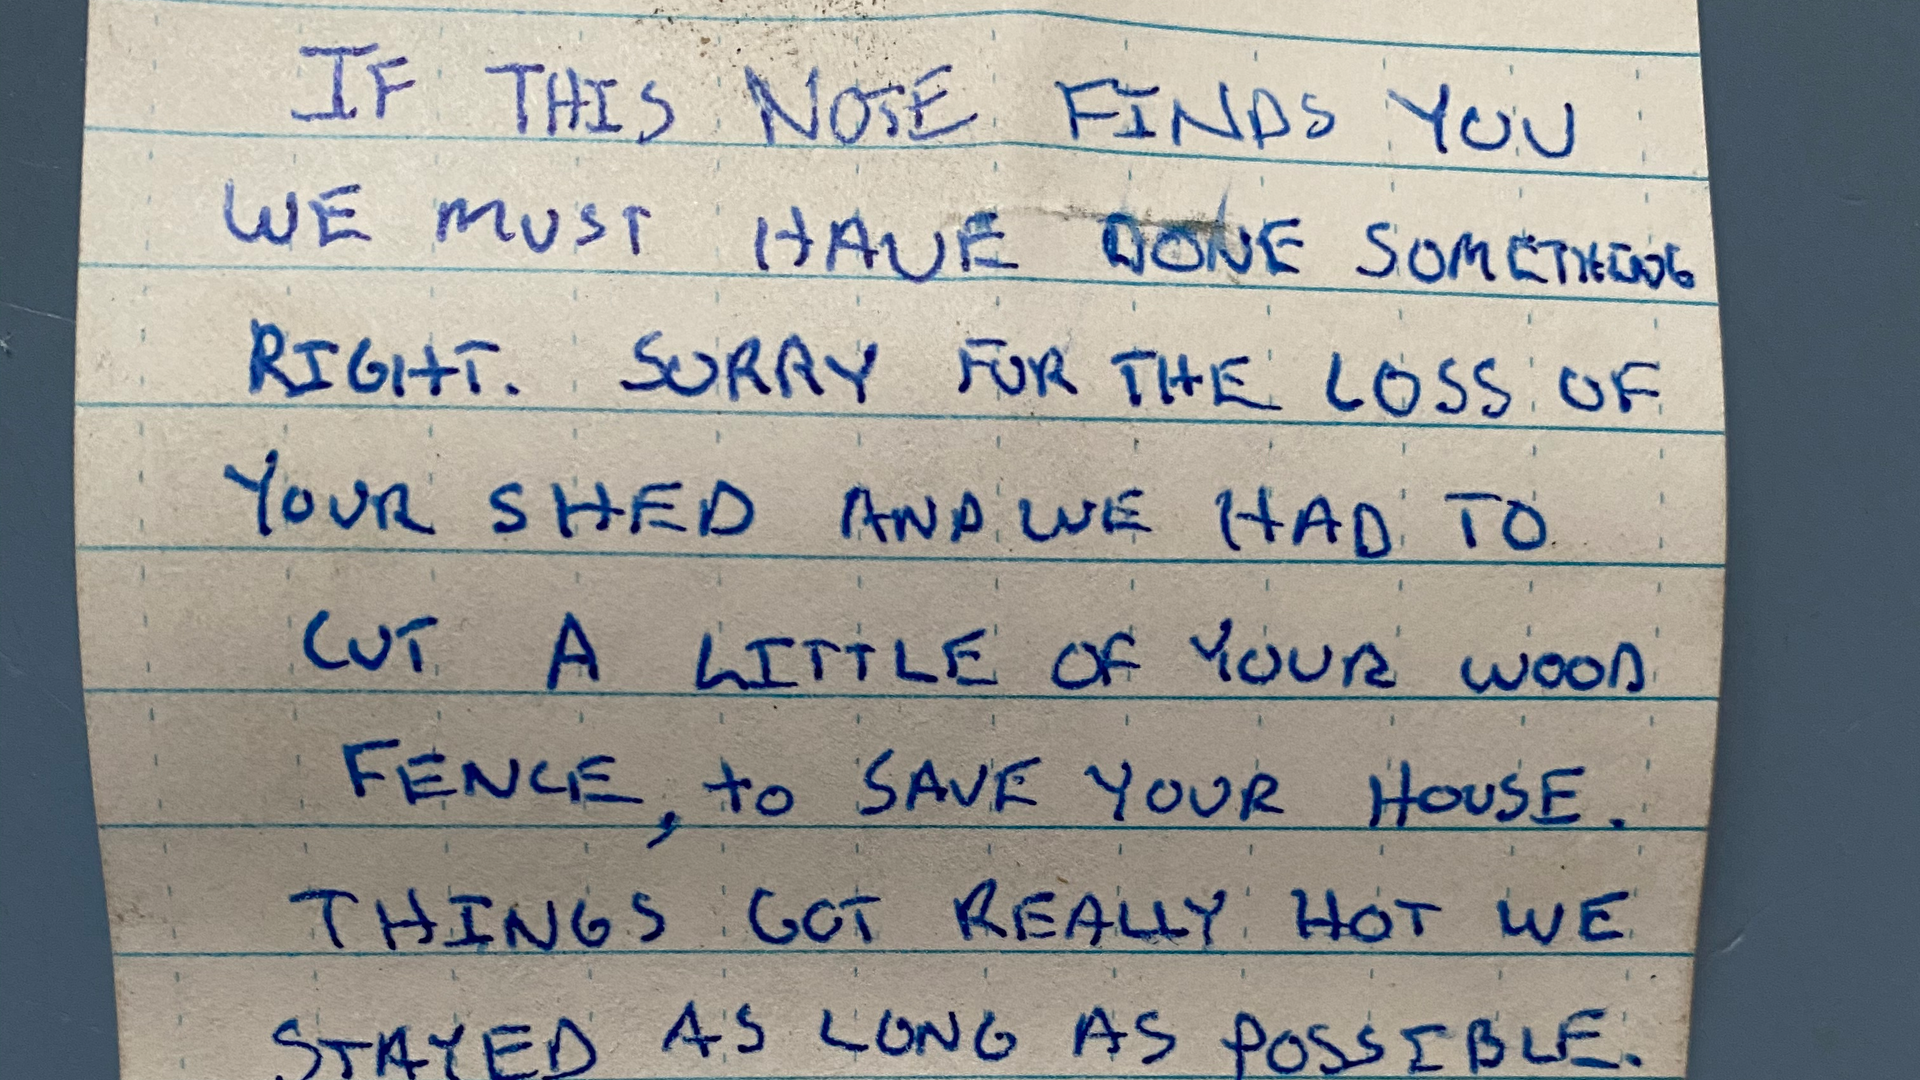 IF THIS NOTE FINDS YOU
WE MUST HAVE DONE SOMETHING
RIGHT. SORRY FOR THE LOSS OF
YOUR SHED AND WE HAD TO
CUT A LITTLE OF YOUR WOOD
FENCE, to SAVE YOUR HOUSE.
THINGS GOT REALLY HOT WE
STAYED AS LONG AS POSSIBLE.